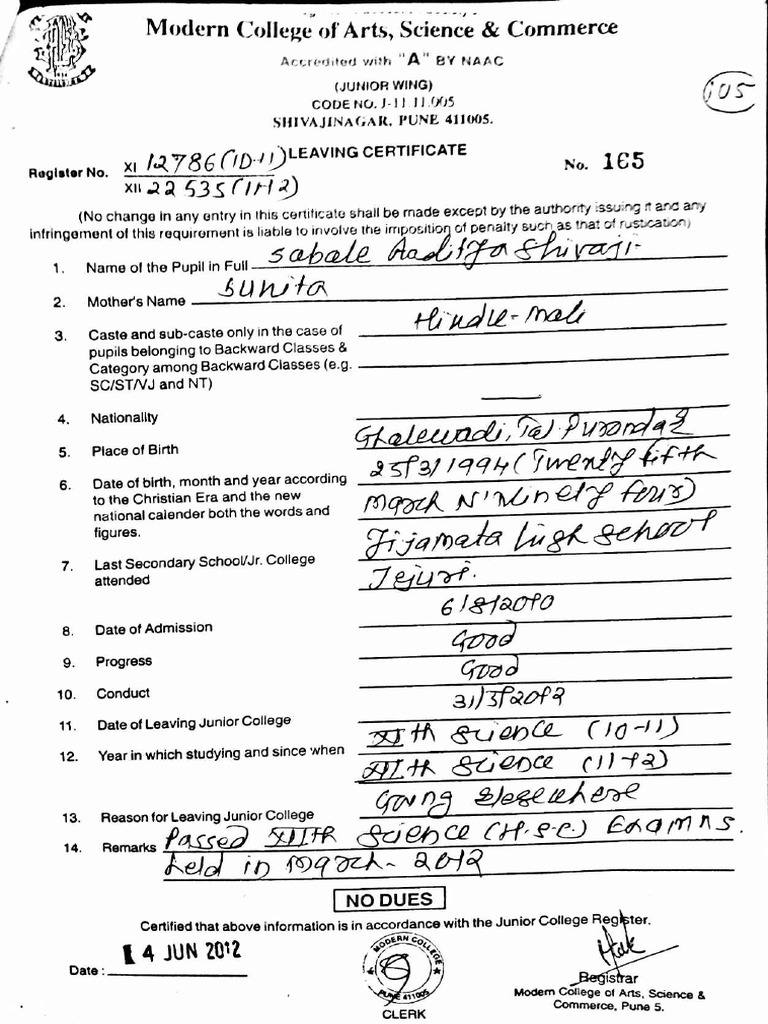 Modern College of Arts, Science & Commerce
Accredited with "A" BY NAAC
(JUNIOR WING)
CODE NO. J-11.11.005
SHIVAJINAGAR, PUNE 411005.
105
LEAVING CERTIFICATE
Register No. XI 12786 (10-11)
XII 22535 (11-12)
No. 165
(No change in any entry in this certificate shall be made except by the authority issuing it and any
infringement of this requirement is liable to involve the imposition of penalty such as that of rustication)
1. Name of the Pupil in Full Sabale Aaditya Shivaji
2. Mother's Name Sunita
3. Caste and sub-caste only in the case of Hindu-Mali
pupils belonging to Backward Classes &
Category among Backward Classes (e.g.
SC/ST/VJ and NT)
4. Nationality —
5. Place of Birth Ghalewadi, Tal Purandar
6. Date of birth, month and year according 25/3/1994 (Twenty fifth
to the Christian Era and the new March N'Ninety four)
national calender both the words and
figures.
7. Last Secondary School/Jr. College Jijamata high school
attended Jejuri.
8. Date of Admission 6/8/2010
9. Progress Good
10. Conduct Good
11. Date of Leaving Junior College 31/3/2012
12. Year in which studying and since when XIth Science (10-11)
XIIth Science (11-12)
13. Reason for Leaving Junior College Going Elsewhere
14. Remarks Passed XIIth Science (H.S.C.) Examns.
held in March- 2012
NO DUES
Certified that above information is in accordance with the Junior College Register.
14 JUN 2012
Date :
MODERN COLLEGE
PUNE 411005
CLERK
Registrar
Modern College of Arts, Science &
Commerce, Pune 5.